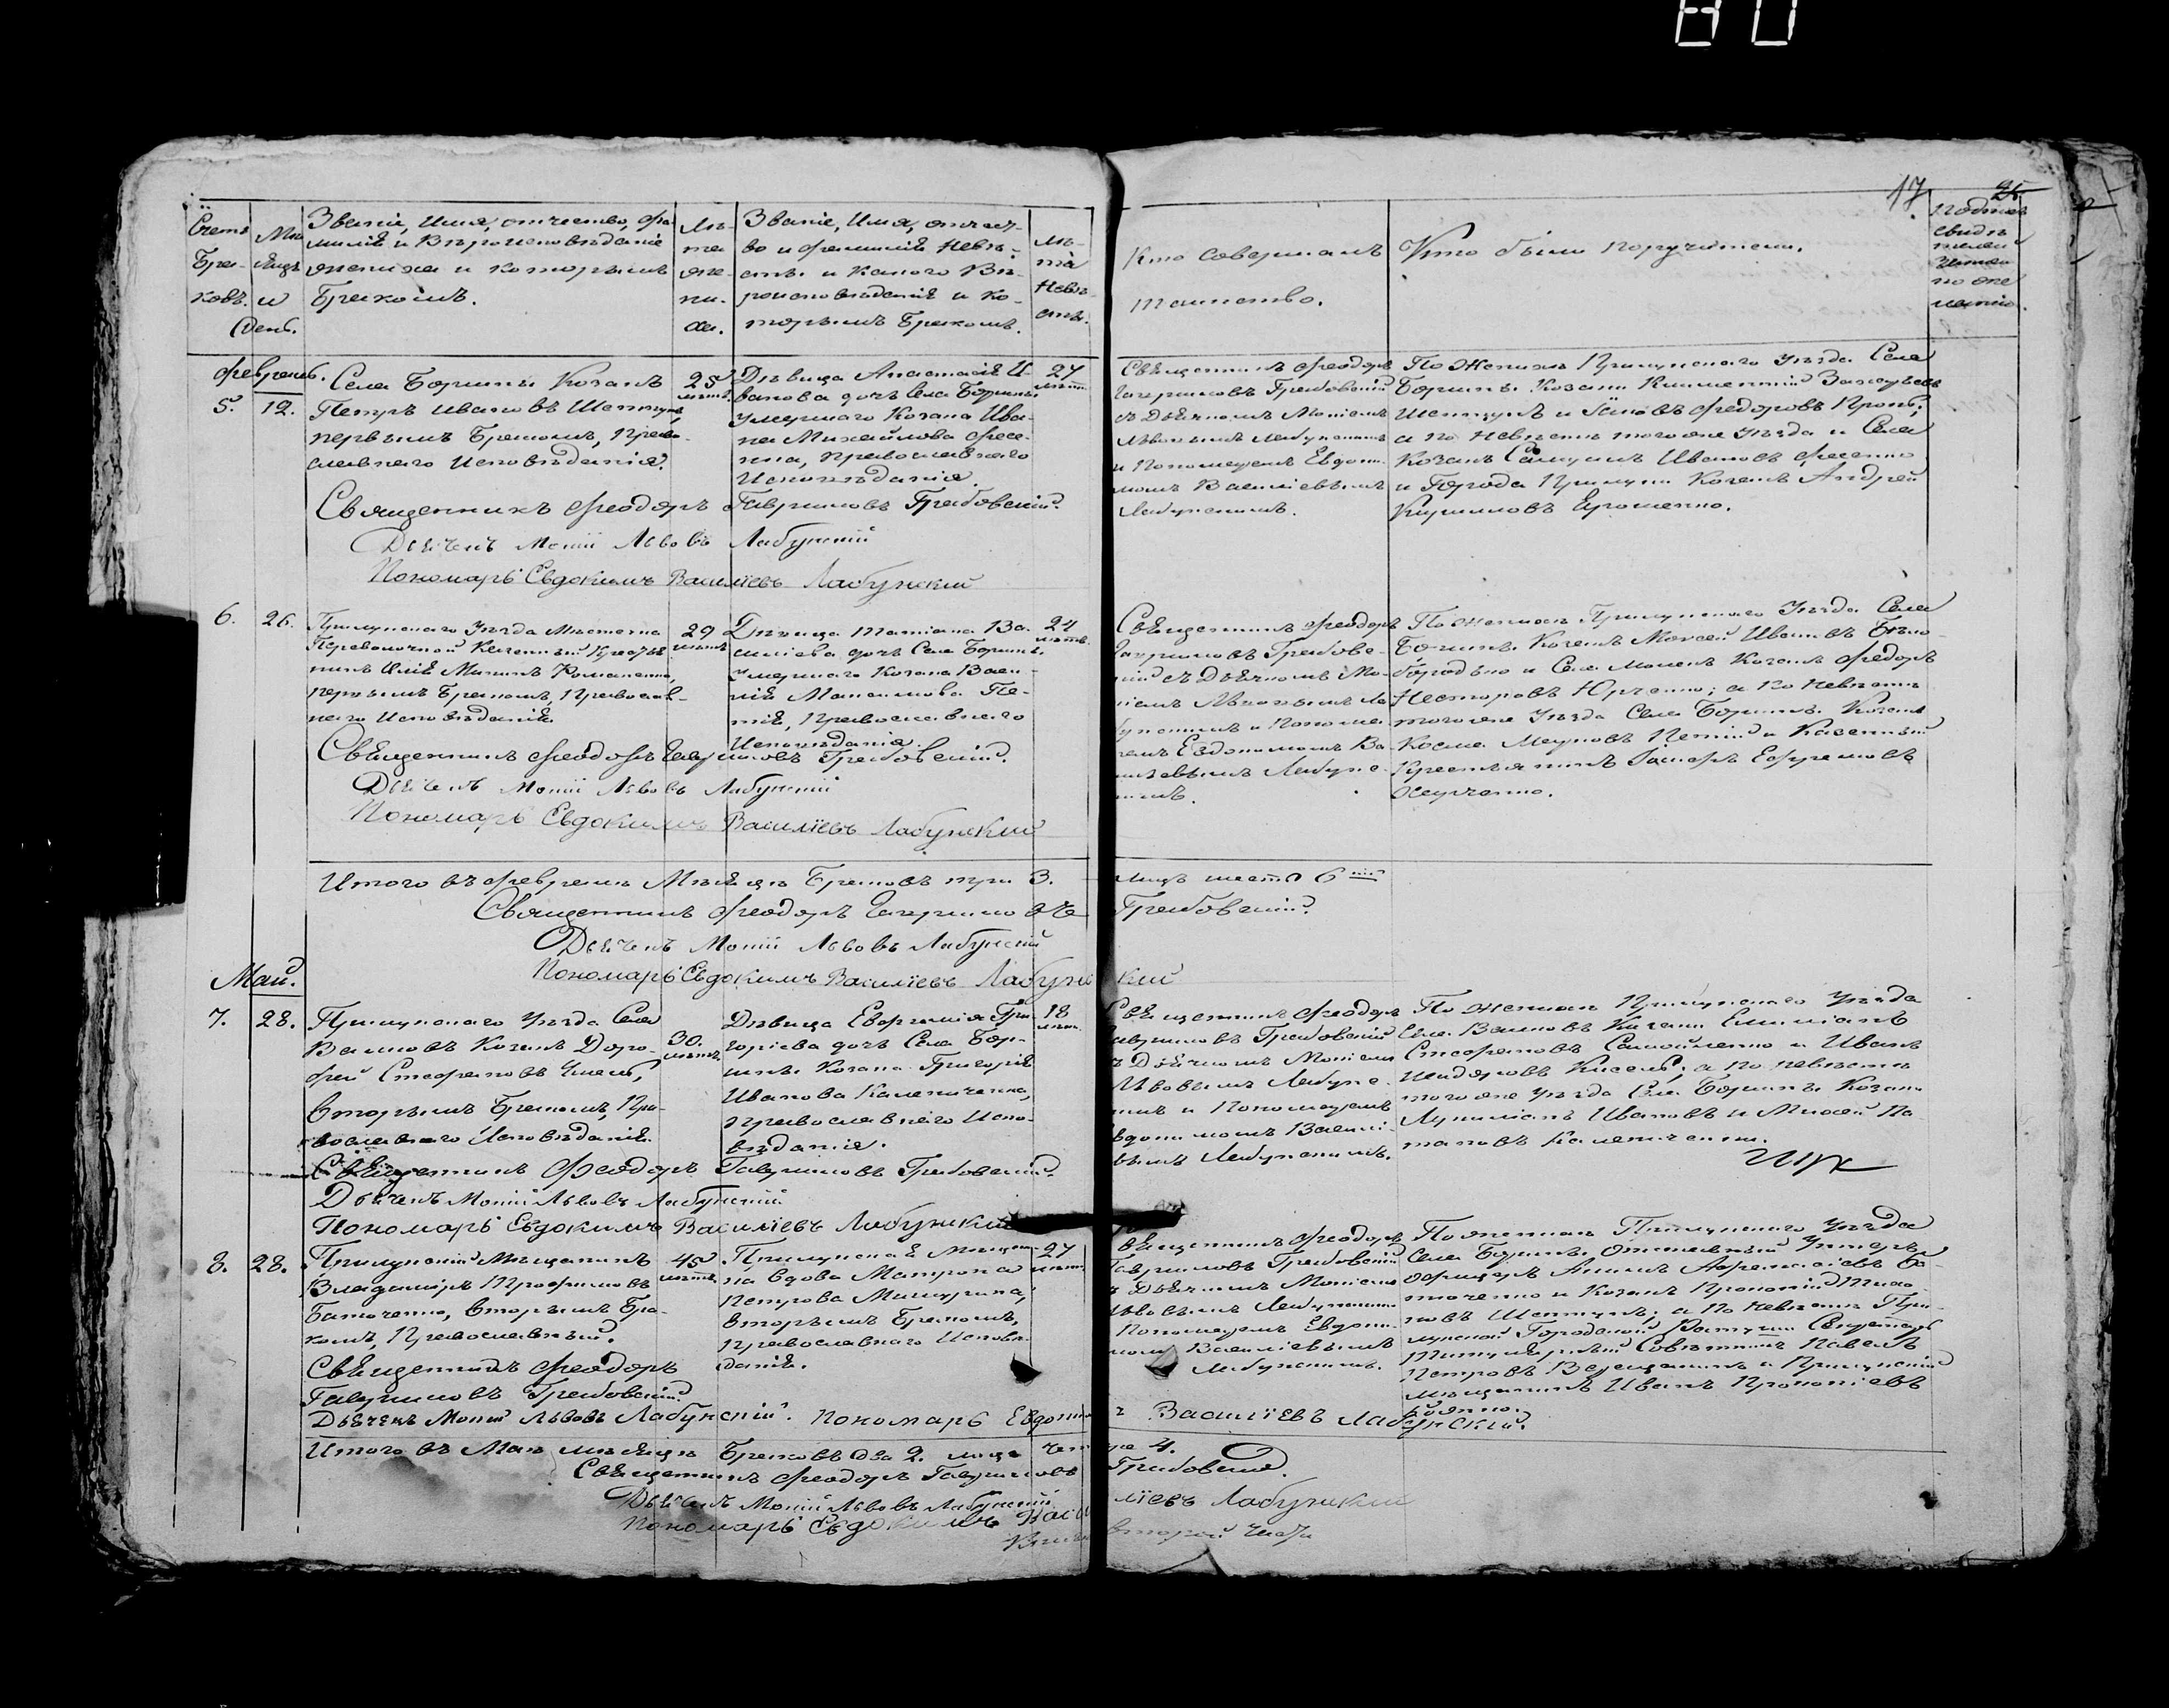 80
17
25
Счетъ
Бра-
ковъ.
Мѣ
сяцъ
и
День.
Званіе, Имя, отчество, фа
милія и Вѣроисповѣданіе
жениха и которымъ
Бракомъ.
Лѣ-
та
же-
ни-
ха.
Званіе, Имя, отчест-
во и фамилія Невѣ-
сты и какого Вѣ-
роисповѣданія и ко-
торымъ Бракомъ.
Лѣ-
та
Невѣ-
сты.
Кто совершалъ
таинство.
Кто были поручители.
Февраль.
5. 12.
Села Боршны Козакъ
Петръ Ивановъ Шептунъ,
первымъ Бракомъ, Право-
славнаго Исповѣданія.
25
лѣтъ.
Дѣвица Анастасія И-
ванова дочь Села Боршны
умершаго Козака Ива-
на Михайлова Фесе-
нка, Православнаго
Исповѣданія.
27
лѣтъ.
Священникъ Феодоръ
Гавриловъ Грибовскій
съ Дьячкомъ Моисіемъ
Львовымъ Лабунскимъ
и Пономаремъ Евдоки-
момъ Василіевымъ
Лабунскимъ.
По Женихѣ Прилукскаго Уѣзда Села
Боршны Козаки Климентій
Шептунъ и Федоровъ
а по Невѣстѣ того же Уѣзда и Села
Козакъ Самуилъ Ивановъ Фесенко
и Города Прилуки Козакъ Андрей
Кириловъ Ярошенко.
Священникъ Феодоръ Гавриловъ Грибовскій.
Дьячекъ Моисій Львовъ Лабунскій
Пономарь Евдокимъ Василіевъ Лабунский
6. 26.
Прилукскаго Уѣзда Мѣстечка
Переволочной Казенный Крестья
нинъ Илія Романенко,
первымъ Бракомъ, Православ-
наго Исповѣданія.
29
лѣтъ.
Дѣвица Татіана Ва-
силіева дочь Села Боршны
умершаго Козака Васи-
лія Максимова Пе-
тія, Православнаго
Исповѣданія.
24
лѣтъ.
Священникъ Феодоръ
Гавриловъ Грибовс-
кій съ Дьячкомъ Мо-
исіемъ Львовымъ Ла
бунскимъ и Понома
ремъ Евдокимомъ Ва-
силіевымъ Лабунс-
кимъ.
По Женихѣ Прилукскаго Уѣзда Села
Боршны Козакъ Моисей Ивановъ Бѣло-
бородько и Села Козакъ Федоръ
Несторовъ Юрченко; а по Невѣстѣ
того же Уѣзда Села Боршны Козакъ
Косма Петій и Казенный
Крестьянинъ Ефремовъ
Священникъ Феодоръ Гавриловъ Грибовскій.
Дьячекъ Моисій Львовъ Лабунскій
Пономарь Евдокимъ Василіевъ Лабунский
Итого въ Февралѣ Мѣсяцѣ Браковъ три 3. лицъ шесть 6
Священникъ Феодоръ Гавриловъ Грибовскій.
Дьячекъ Моисій Львовъ Лабунскій
Пономарь Евдокимъ Василіевъ Лабунский
Май.
7. 28.
Прилукскаго Уѣзда Села
Валковъ Козакъ Доро-
фей Стефановъ
Вторымъ Бракомъ, Пра-
вославнаго Исповѣданія.
30.
лѣтъ.
Дѣвица Евфимія Гри
горіева дочь Села Бор-
шны Козака Григорія
Иванова Калениченка,
православнаго Испо-
вѣданія.
18
лѣтъ.
Священникъ Феодоръ
Гавриловъ Грибовскій
съ Дьячкомъ Моисіемъ
Львовымъ Лабунс-
кимъ и Пономаремъ
Евдокимомъ Василі-
вымъ Лабунскимъ.
По Женихѣ Прилукскаго Уѣзда
Села Валковъ Козаки Емиліанъ
Стефановъ Самойленко и Иванъ
Кисель; а по невѣстѣ
того же Уѣзда Села Боршны Козаки
Лукиліанъ Ивановъ и Моисей По-
таповъ Калениченки.
Священникъ Феодоръ Гавриловъ Грибовскій.
Дьячекъ Моисій Львовъ Лабунскій
Пономарь Евдокимъ Василіевъ Лабунский
8. 28.
Прилукскій Мѣщанинъ
Владиміръ Трофимовъ
Баточенко, вторымъ Бра-
комъ, Православный.
45
лѣтъ.
Прилукская Мѣщан-
ка вдова Матрона
Петрова Мичурина,
вторымъ Бракомъ,
православнаго Исповѣ-
данія.
27
лѣтъ.
Священникъ Феодоръ
Гавриловъ Грибовскій
съ Дьячкомъ Моисіемъ
Львовымъ Лабунскимъ
Пономаремъ Евдоки-
момъ Василіевымъ
Лабунскимъ.
По женихѣ Прилукскаго Уѣзда
Села Боршны Отставный Унтеръ
офицеръ Акимъ
и Козакъ Прокопій
Шептунъ; а по Невѣстѣ При-
лукской Городской Ратуши Секретарь
Титулярный Совѣтникъ Павелъ
Петровъ Верещакинъ и Прилукскій
мѣщанинъ Иванъ Прокопіевъ
Священникъ Феодоръ
Гавриловъ Грибовскій
Дьячекъ Моисій Львовъ Лабунскій. Пономарь Евдокимъ Василіевъ Лабунский.
Итого въ Маѣ мѣсяцѣ Браковъ два 2. лица четыре 4.
Священникъ Феодоръ Гавриловъ Грибовскій.
Дьячекъ Моисій Львовъ Лабунскій
Пономарь Евдокимъ Василіевъ Лабунский
второй части